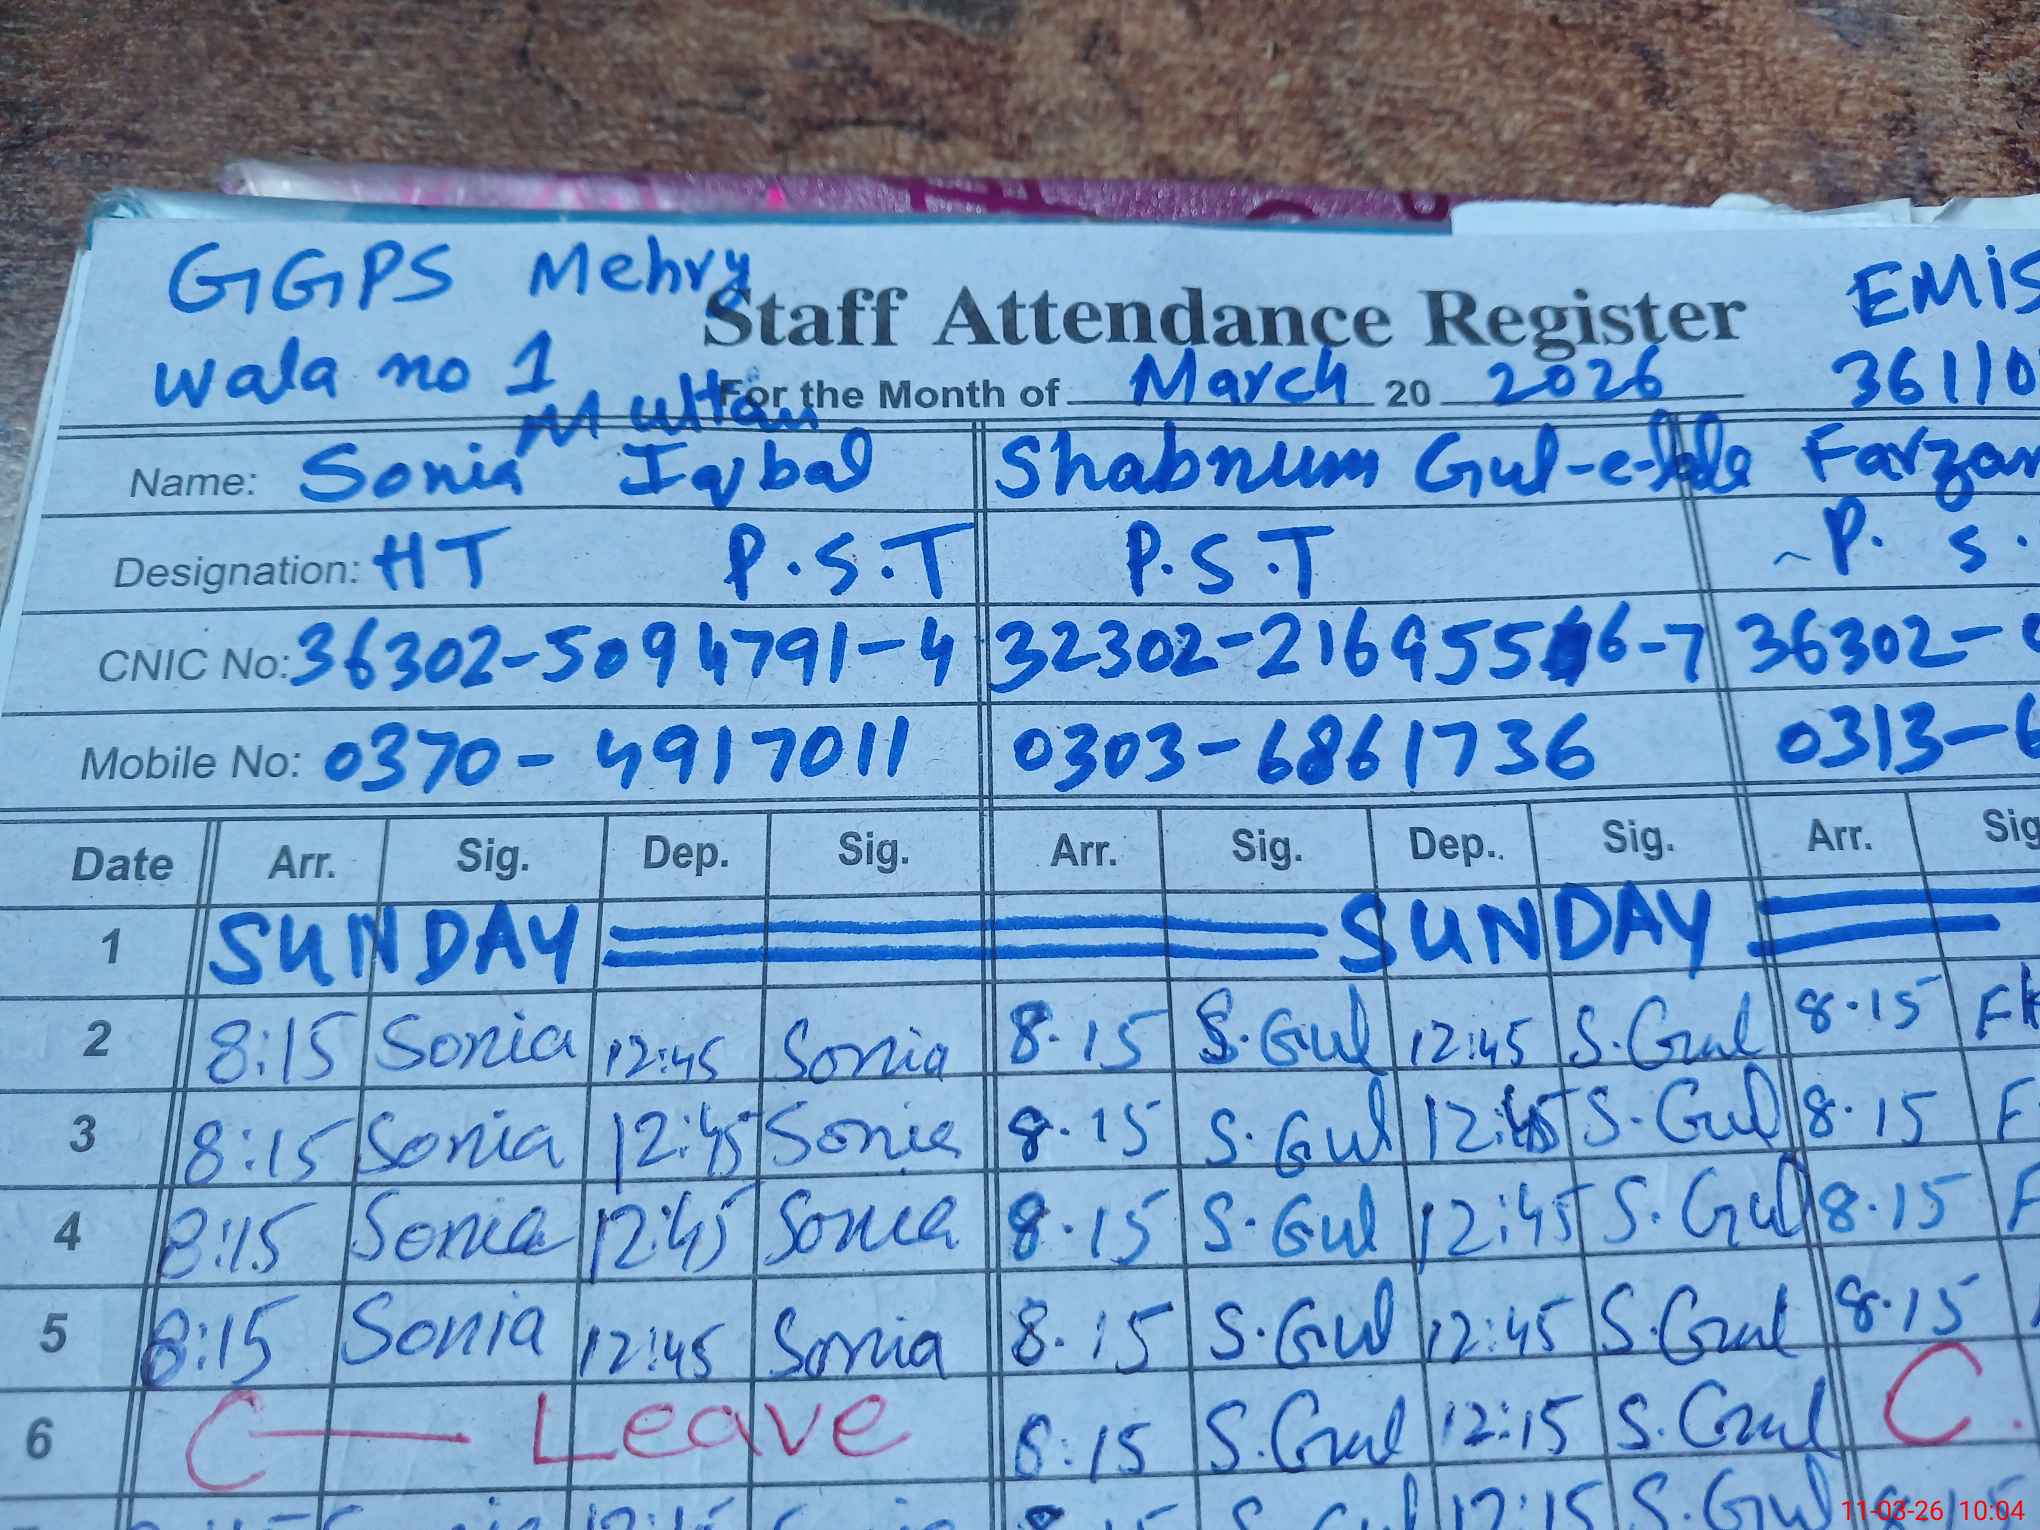 GGPS Mehry
wala no 1
Multan
Staff Attendance Register
For the Month of March 20 2026
EMIS
36110
Name: Sonia Iqbal Shabnum Gul-e-lala Farzan
Designation: HT P.S.T P.S.T P. S.
CNIC No: 36302-5094791-4 32302-2169556-7 36302-
Mobile No: 0370-4917011 0303-6861736 0313-6
Date Arr. Sig. Dep. Sig. Arr. Sig. Dep.. Sig. Arr. Sig
1 SUNDAY SUNDAY
2 8:15 Sonia 12:45 Sonia 8.15 S.Gul 12:45 S.Gul 8.15
3 8:15 Sonia 12:45 Sonia 8.15 S.Gul 12:45 S.Gul 8.15 F
4 8:15 Sonia 12:45 Sonia 8.15 S.Gul 12:45 S.Gul 8.15 F
5 8:15 Sonia 12:45 Sonia 8.15 S.Gul 12:45 S.Gul 8.15
6 C — Leave 8:15 S.Gul 12:15 S.Gul C.
12:15 S.Gul
11-03-26 10:04